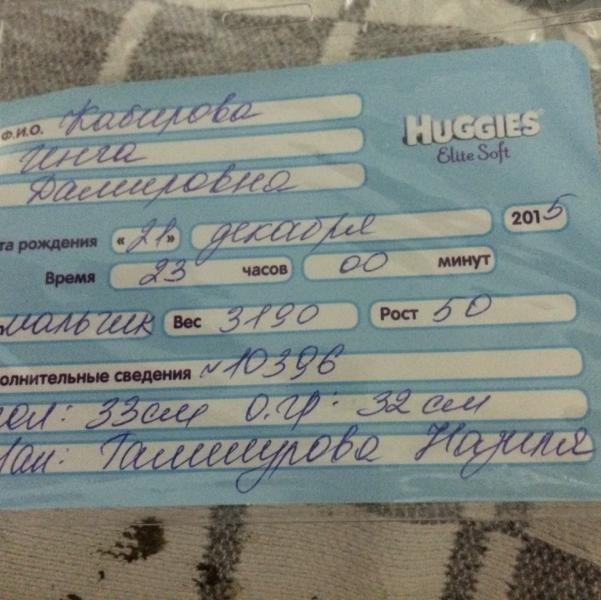 Ф.И.О. Кабирова
HUGGIES
Elite Soft
Инга
Дамировна
та рождения «21» декабря 2015
Время 23 часов 00 минут
мальчик Вес 3190 Рост 50
олнительные сведения №10396
ол: 33см О.гр: 32 см
Галимурова Назиля